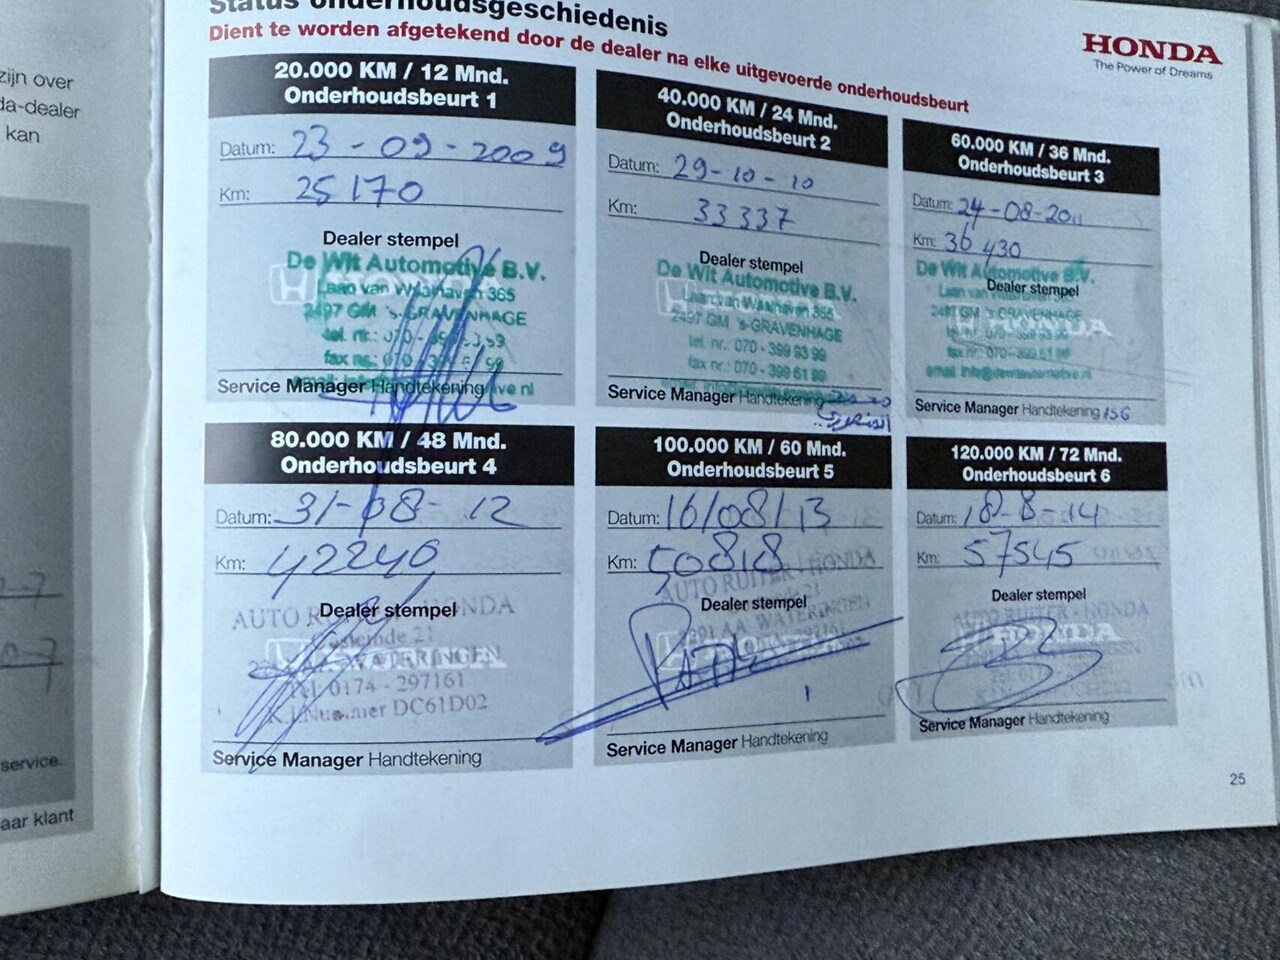 Status onderhoudsgeschiedenis
Dient te worden afgetekend door de dealer na elke uitgevoerde onderhoudsbeurt
HONDA
The Power of Dreams
zijn over
da-dealer
kan
service.
aar klant
20.000 KM / 12 Mnd.
Onderhoudsbeurt 1
Datum: 23-09-2009
Km: 25170
Dealer stempel
De Wit Automotive B.V.
Laan van Waalhaven 365
2497 GM 's-GRAVENHAGE
Service Manager Handtekening
40.000 KM / 24 Mnd.
Onderhoudsbeurt 2
Datum: 29-10-10
Km: 33337
Dealer stempel
De Wit Automotive B.V.
Laan van Waalhaven 365
2497 GM 's-GRAVENHAGE
tel. nr.: 070 - 399 93 99
fax nr.: 070 - 399 61 89
Service Manager Handtekening
60.000 KM / 36 Mnd.
Onderhoudsbeurt 3
Datum: 24-08-2011
Km: 36430
De Wit Automotive B.V.
Dealer stempel
2497 GM 's-GRAVENHAGE
HONDA
email: info@dewitautomotive.nl
Service Manager Handtekening 156
80.000 KM / 48 Mnd.
Onderhoudsbeurt 4
Datum: 31-08-12
Km: 42240
Dealer stempel
HONDA
WATERINGEN
0174 - 297161
DC61D02
Service Manager Handtekening
100.000 KM / 60 Mnd.
Onderhoudsbeurt 5
Datum: 16/08/13
Km: 50818
AUTO RUITER - HONDA
Dealer stempel
2291 AA WATERINGEN
Service Manager Handtekening
120.000 KM / 72 Mnd.
Onderhoudsbeurt 6
Datum: 18-8-14
Km: 57545
Dealer stempel
AUTO RUITER - HONDA
HONDA
Service Manager Handtekening
25